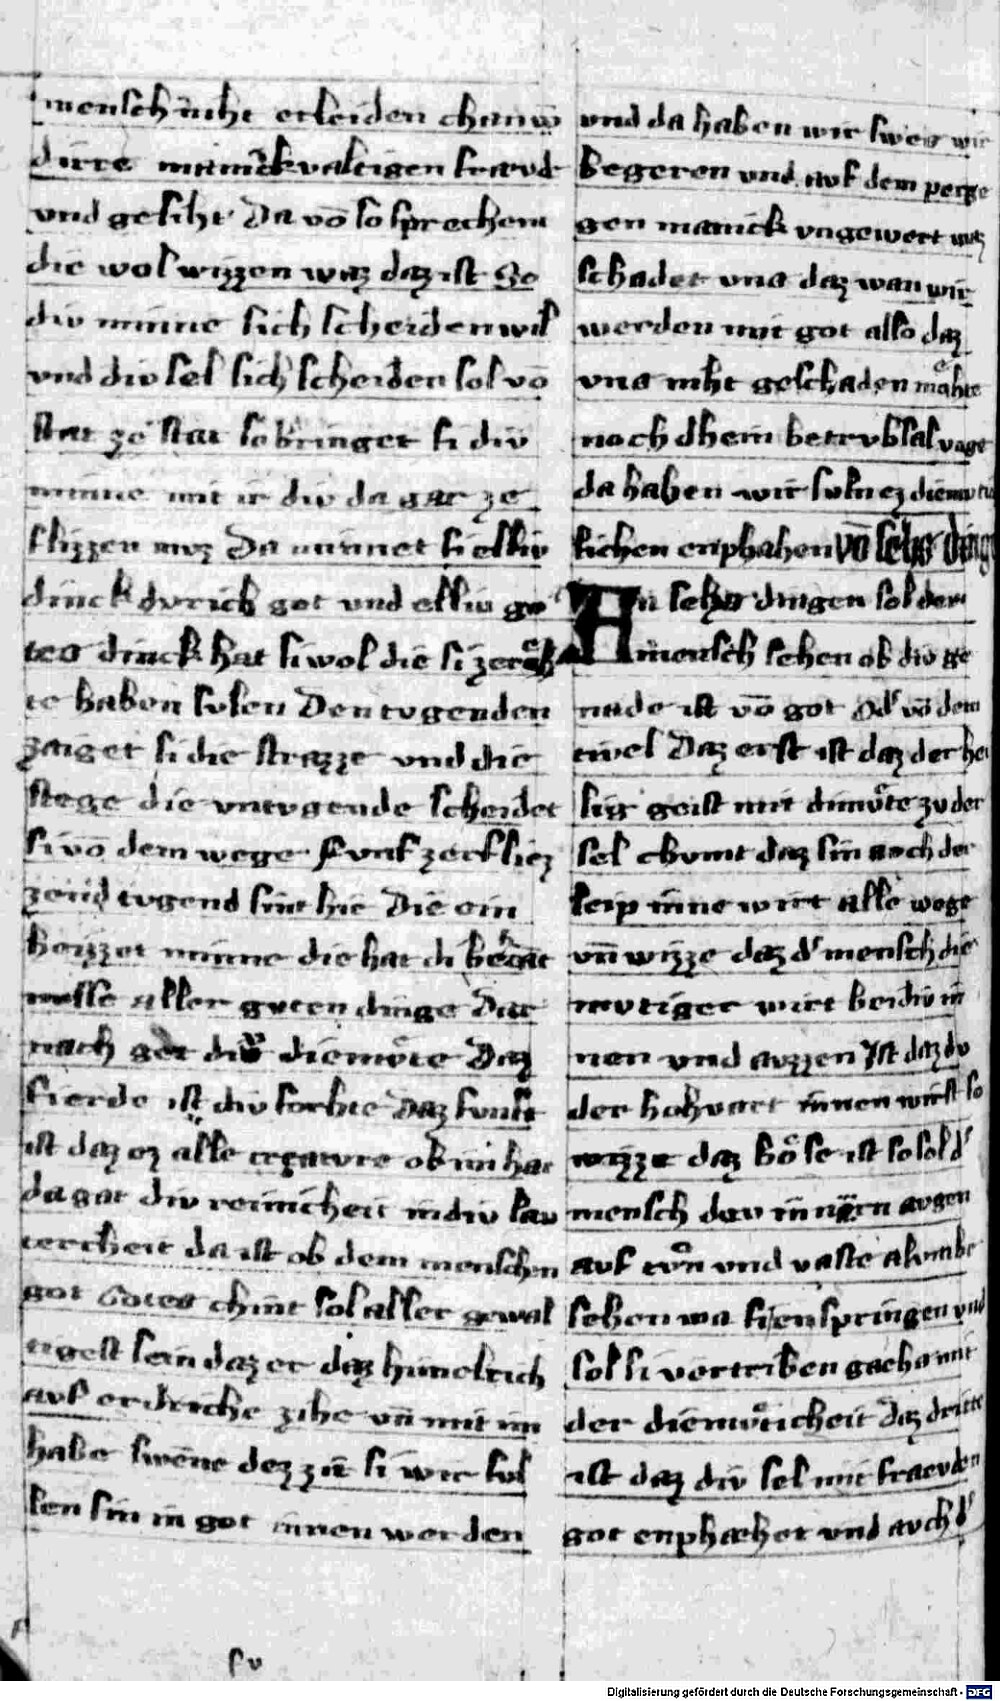 mensch niht erleiden chan vō
dirre manickvaltigen fravd
vnd gesiht Da vō so sprechent
die wol wizzen waz daz ist So
div minne sich scheiden wil
vnd div sel sich scheiden sol vō
stat ze stat so bringet si div
minne mit ir div da gar ze
flizzen mvz Da minnet si elliv
dinck dvrich got vnd elliv go
tes dinck hat si wol die si ze rehͤ
te haben svlen Den tvgenden
zaiget si die strazze vnd die
stege die vntvgende scheidet
si vō dem wege Fvnf zerfliez
zend tvgend sint hie Die ein
heizzet minne die hat di
nusse aller gvten dinge Dar
nach get div diemvͤte Daz
fierde ist div forhte Daz fvnft
ist daz ez alle creatvre ob im hat
da gat div reinicheit in div lav
tercheit da ist ob dem menschen
got Gotes chint sol aller gewal
tigest sein daz er daz himelrich
avf erdriche zihe vn̄ mit im
habe swenne dez zit si wir svl
len sin in got innen werden
vnd da haben wir swes wir
begeren vnd avf dem perge
gen manick vngewert
schadet vns daz wan wir
werden mit got also daz
vns niht geschaden mæhte
noch dhein betrvbsal
da haben wir svln ez diemvti
klichen enphahen vō sehs ding
An sehs dingen sol der
mensch sehen ob div ge
nade ist vō got od' vō dem
tivel Daz erst ist daz der hei
lig geist mit dimvͤte zv der
sel chvmt daz sin avch der
leip inne wirt alle wege
vn̄ wizze daz d' mensch die
mvtiger wirt beidiv in
nen vnd avzzen Ist daz dv
der hohvart innen wirst so
wizze daz bôse ist so sol d'
mensch div innern avgen
avf tvͦn vnd vaste al vmbe
sehen wa si enspringen vnd
sol si vertriben gachs mit
der diemvͤticheit Daz dritte
ist daz div sel mit fraevden
got enphæhet vnd avch d'
fv
Digitalisierung gefördert durch die Deutsche Forschungsgemeinschaft - DFG